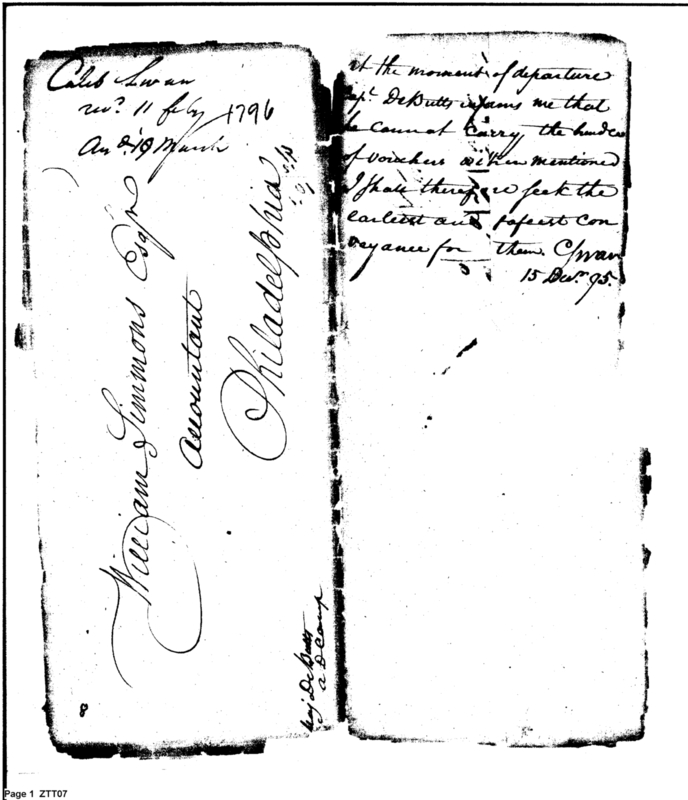 Caleb Swan
recd. 11 feby 1796
Ansd. 19 March
William Simmons Esqr
Accountant
Philadelphia
Maj DeButts
a D Camp
8
at the moment of departure
Capt. DeButts informs me that
he cannot Carry the bundles
of vouchers within mentioned
I shall therefore seek the
earliest and safest Con
veyance for them. CSwan
15 Decr. 95.
Page 1 ZTT07